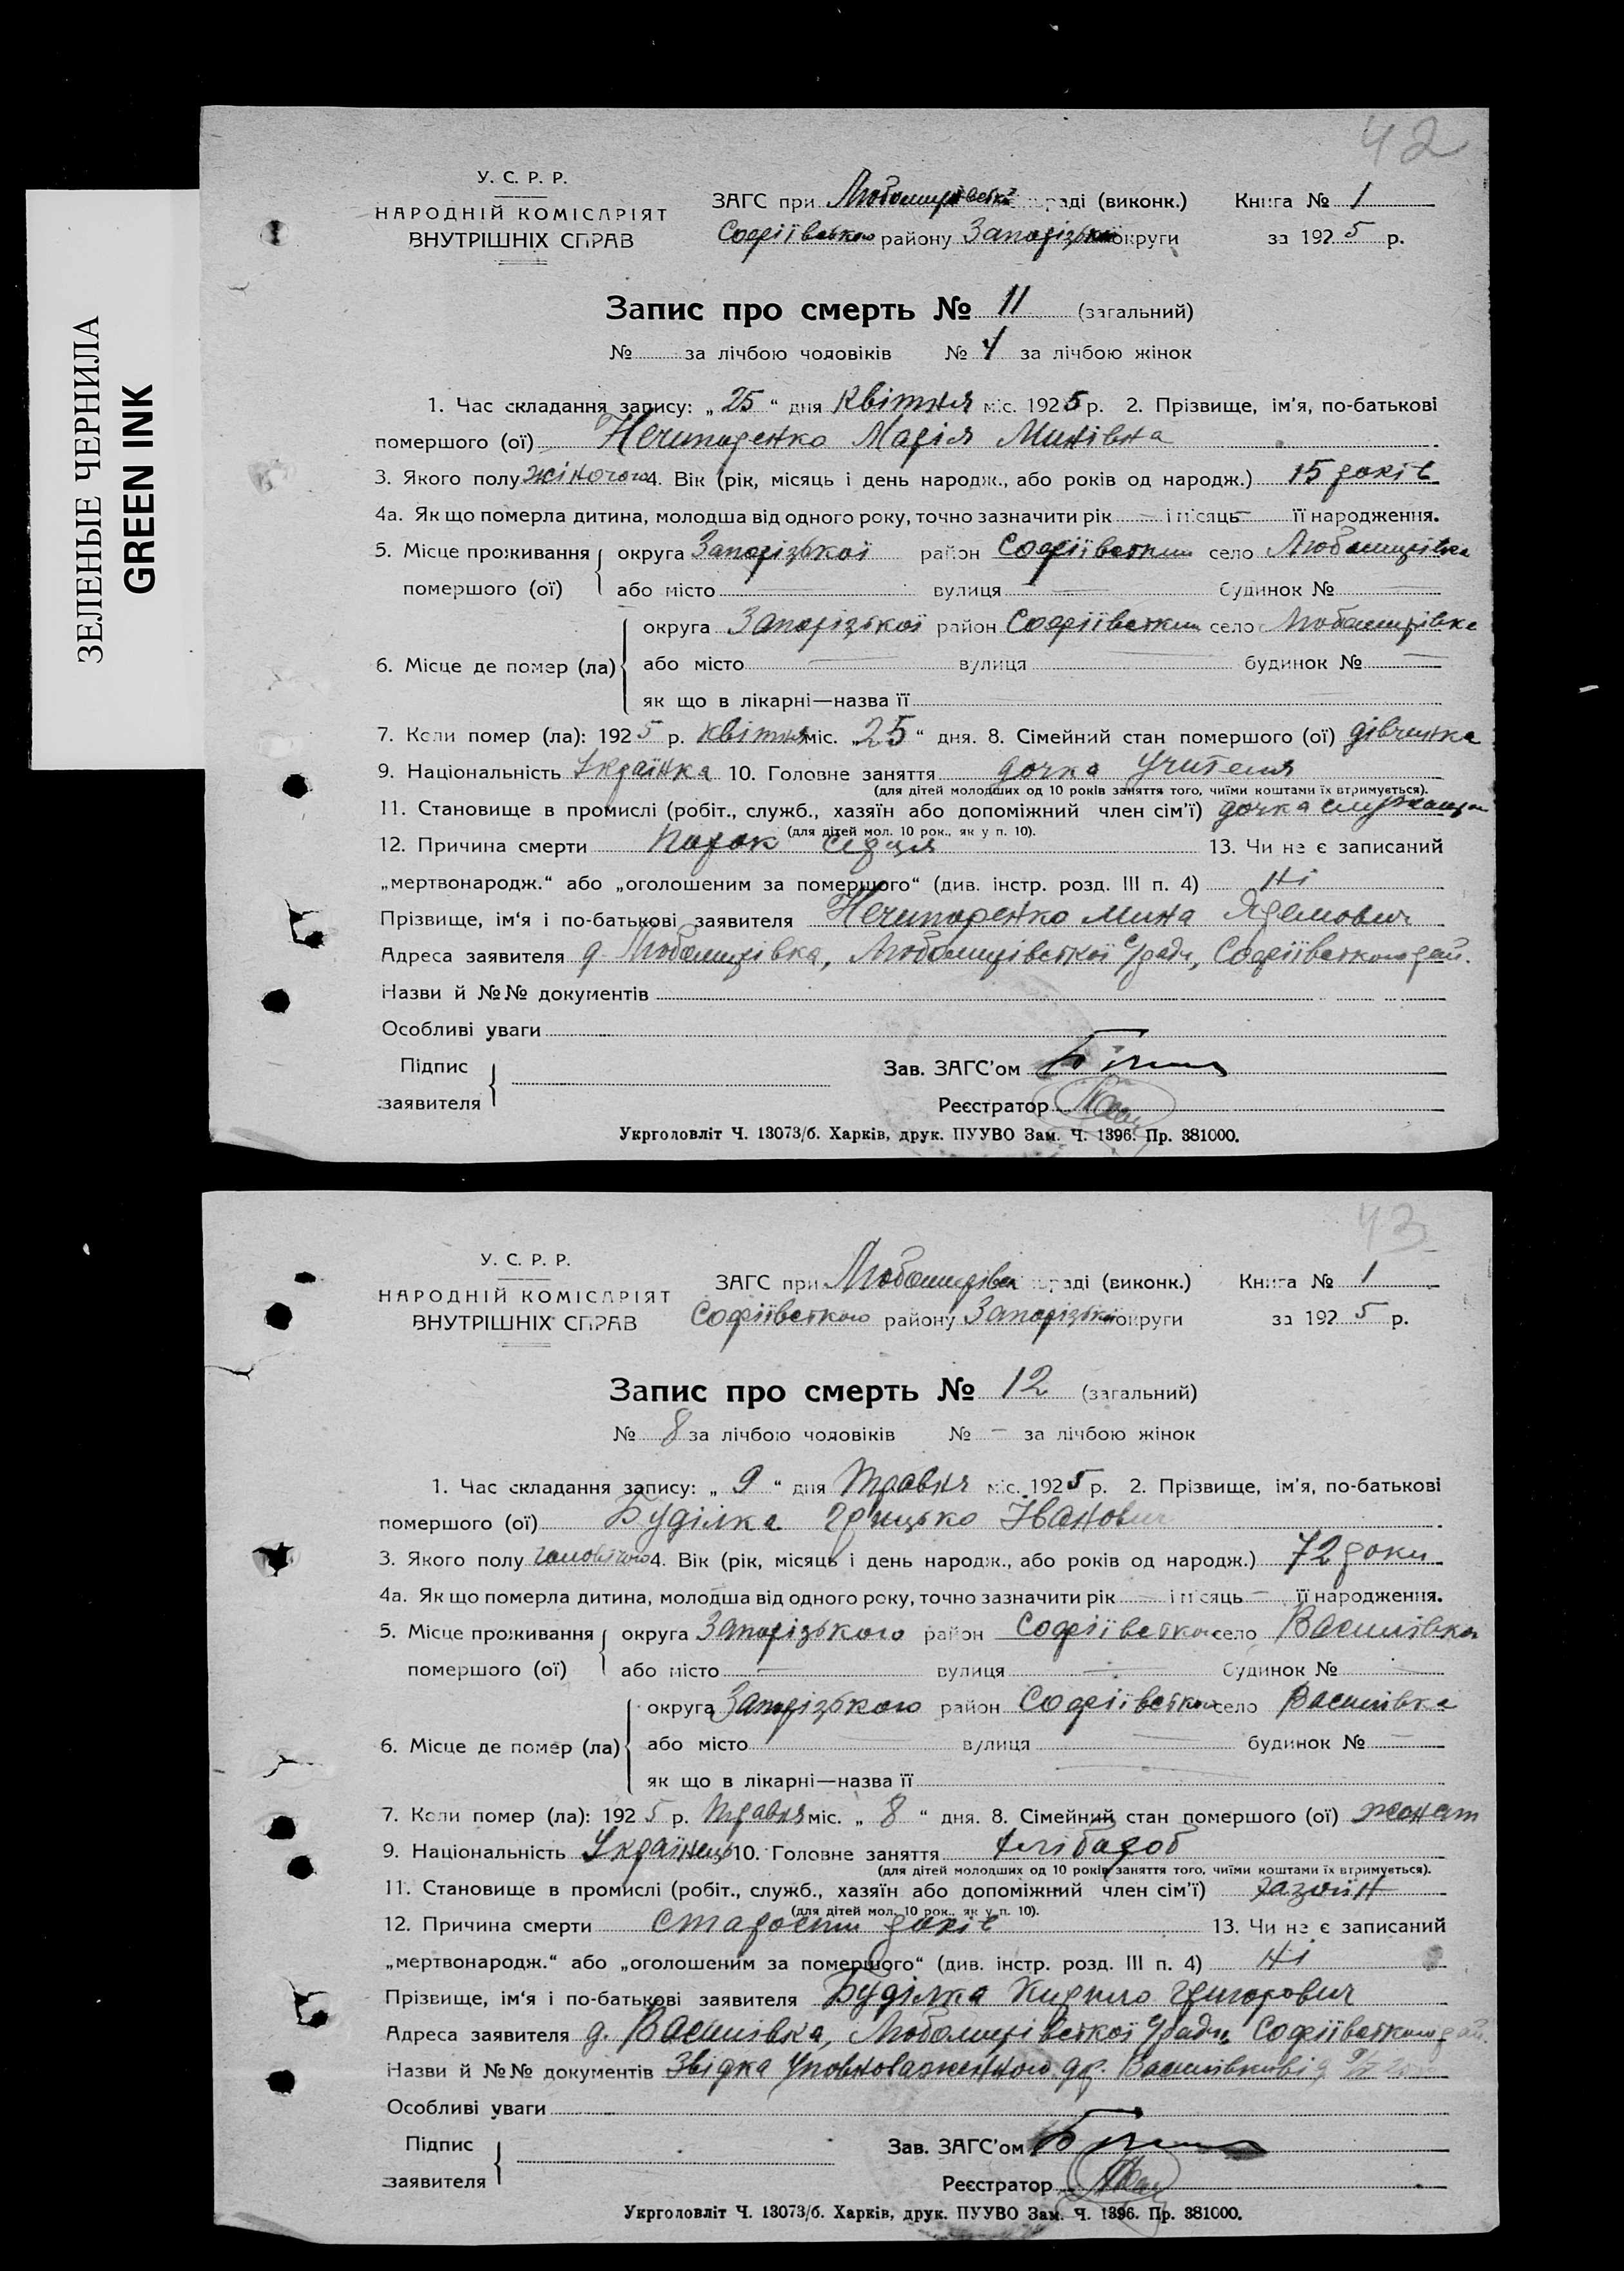 ЗЕЛЕНЫЕ ЧЕРНИЛА
GREEN INK
42
У. С. Р. Р.
НАРОДНІЙ КОМІСАРІЯТ
ВНУТРІШНІХ СПРАВ
ЗАГС при Любомирівській раді (виконк.) Книга № 1
Софіївського району Запорізької округи за 1925 р.
Запис про смерть № 11 (загальний)
№ за лічбою чоловіків № 4 за лічбою жінок
1. Час складання запису: „25“ дня квітня міс. 1925 р. 2. Прізвище, ім'я, по-батькові
помершого (ої) Нечипоренко Марія Минівна
3. Якого полу жіночого 4. Вік (рік, місяць і день народж., або років од народж.) 15 років
4а. Як що померла дитина, молодша від одного року, точно зазначити рік — і місяць — її народження.
5. Місце проживання округа Запорізької район Софіївським село Любомирівка
помершого (ої) або місто — вулиця — будинок № —
округа Запорізької район Софіївським село Любомирівка
6. Місце де помер (ла) або місто — вулиця — будинок № —
як що в лікарні—назва її
7. Коли помер (ла): 1925 р. квітня міс. „25“ дня. 8. Сімейний стан помершого (ої) дівчинка
9. Національність Українка 10. Головне заняття дочка учителя
(для дітей молодших од 10 років заняття того, чиїми коштами їх втримується).
11. Становище в промислі (робіт., служб., хазяїн або допоміжний член сім'ї) дочка
(для дітей мол. 10 рок., як у п. 10).
12. Причина смерти порок серця 13. Чи не є записаний
„мертвонародж.“ або „оголошеним за помершого“ (див. інстр. розд. III п. 4) ні
Прізвище, ім'я і по-батькові заявителя Нечипоренко Мина Яремович
Адреса заявителя д. Любомирівка, Любомирівської с/ради, Софіївського рай.
Назви й №№ документів
Особливі уваги
Підпис Зав. ЗАГС'ом
заявителя Реєстратор
Укрголовліт Ч. 13073/б. Харків, друк. ПУУВО Зам. Ч. 1396. Пр. 381000.
43
У. С. Р. Р.
НАРОДНІЙ КОМІСАРІЯТ
ВНУТРІШНІХ СПРАВ
ЗАГС при Любомирівск раді (виконк.) Книга № 1
Софіївського району Запорізької округи за 1925 р.
Запис про смерть № 12 (загальний)
№ 8 за лічбою чоловіків № — за лічбою жінок
1. Час складання запису: „9“ дня травня міс. 1925 р. 2. Прізвище, ім'я, по-батькові
помершого (ої) Буділка Грицько Іванович
3. Якого полу чоловічого 4. Вік (рік, місяць і день народж., або років од народж.) 72 роки
4а. Як що померла дитина, молодша від одного року, точно зазначити рік — і місяць — її народження.
5. Місце проживання округа Запорізького район Софіївського село Василівка
помершого (ої) або місто — вулиця — будинок № —
округа Запорізького район Софіївського село Василівка
6. Місце де помер (ла) або місто — вулиця — будинок № —
як що в лікарні—назва її
7. Коли помер (ла): 1925 р. травня міс. „8“ дня. 8. Сімейний стан помершого (ої) жонат
9. Національність Українець 10. Головне заняття хлібароб
(для дітей молодших од 10 років заняття того, чиїми коштами їх втримується).
11. Становище в промислі (робіт., служб., хазяїн або допоміжний член сім'ї) хазяїн
(для дітей мол. 10 рок., як у п. 10).
12. Причина смерти старости років 13. Чи не є записаний
„мертвонародж.“ або „оголошеним за помершого“ (див. інстр. розд. III п. 4) ні
Прізвище, ім'я і по-батькові заявителя Буділка Кирило Григорович
Адреса заявителя д. Василівка, Любомирівської с/ради Софіївського рай.
Назви й №№ документів Звідка уповноваженного др. Василівки від
Особливі уваги
Підпис Зав. ЗАГС'ом
заявителя Реєстратор
Укрголовліт Ч. 13073/б. Харків, друк. ПУУВО Зам. Ч. 1396. Пр. 381000.